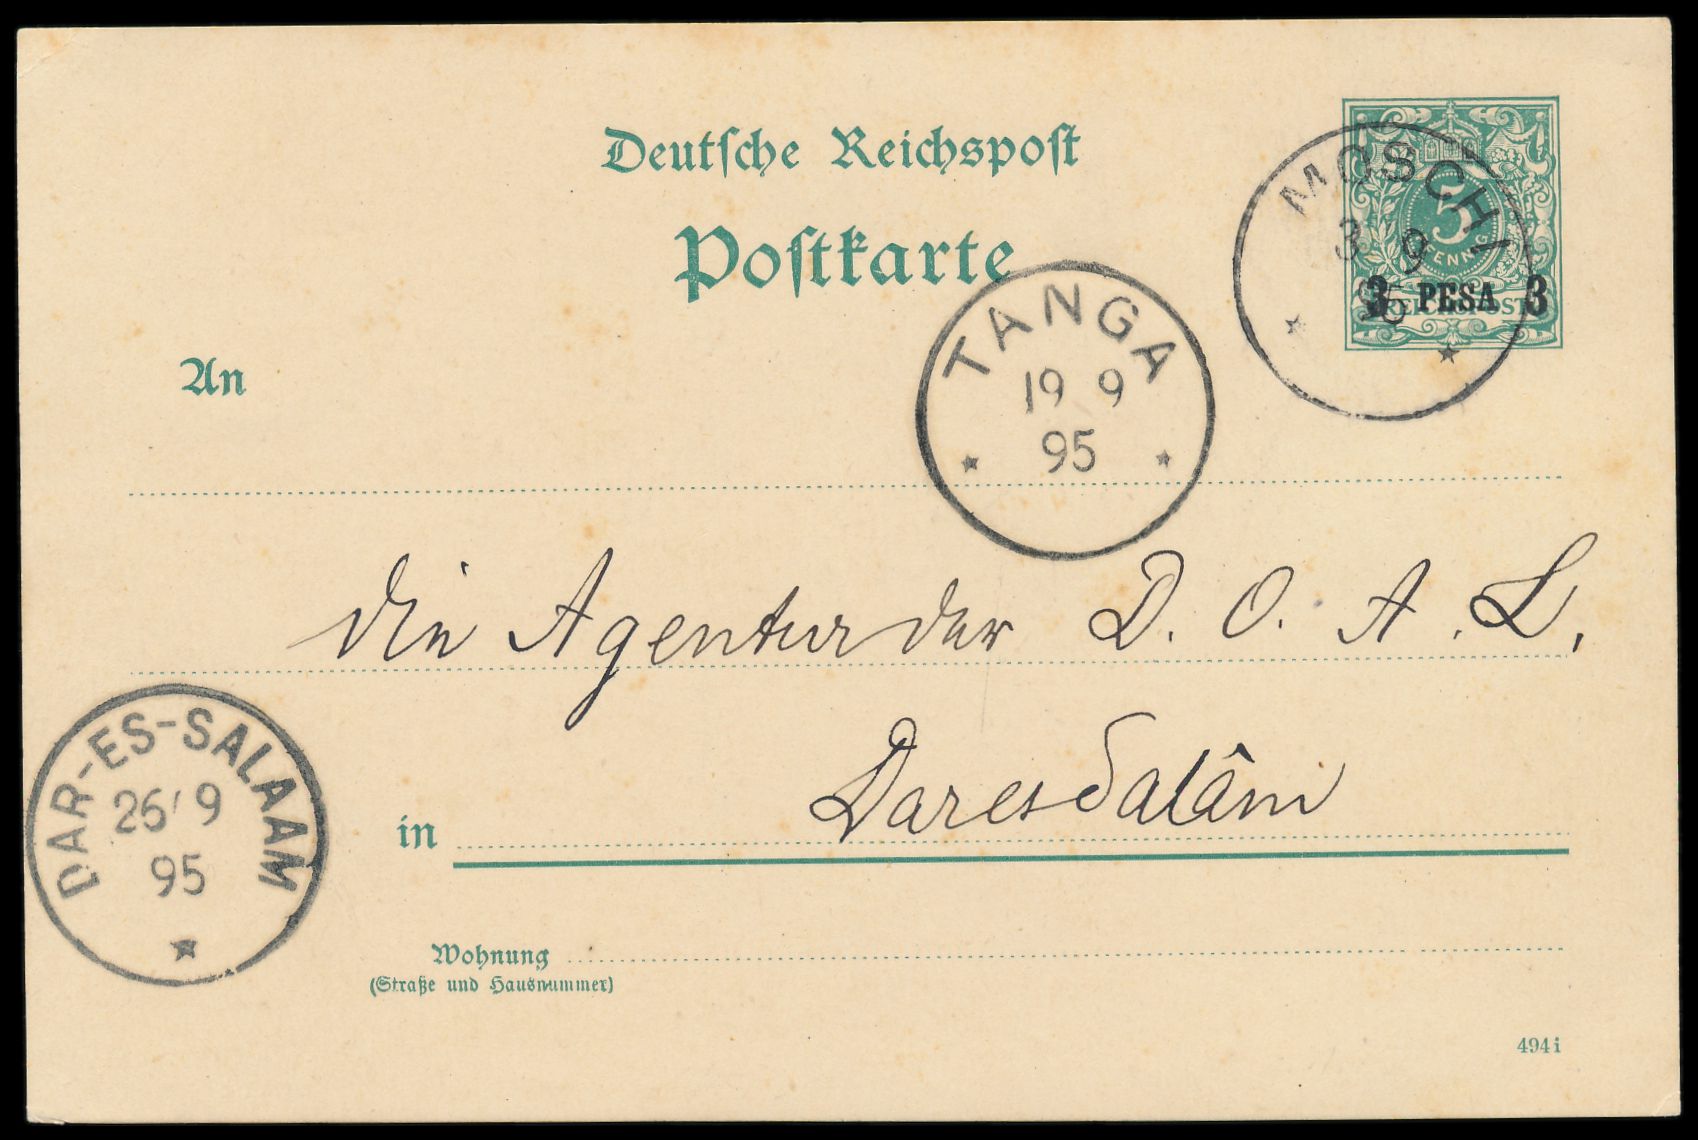 Deutsche Reichspost
Postkarte
MOSCHI
3 9
95
5
PFENNIG
3 PESA 3
REICHSPOST
TANGA
19 9
95
An
die Agentur der D. O. A. L.
DAR-ES-SALAAM
26/9
95
in Daressalâm
Wohnung
(Straße und Hausnummer)
494i